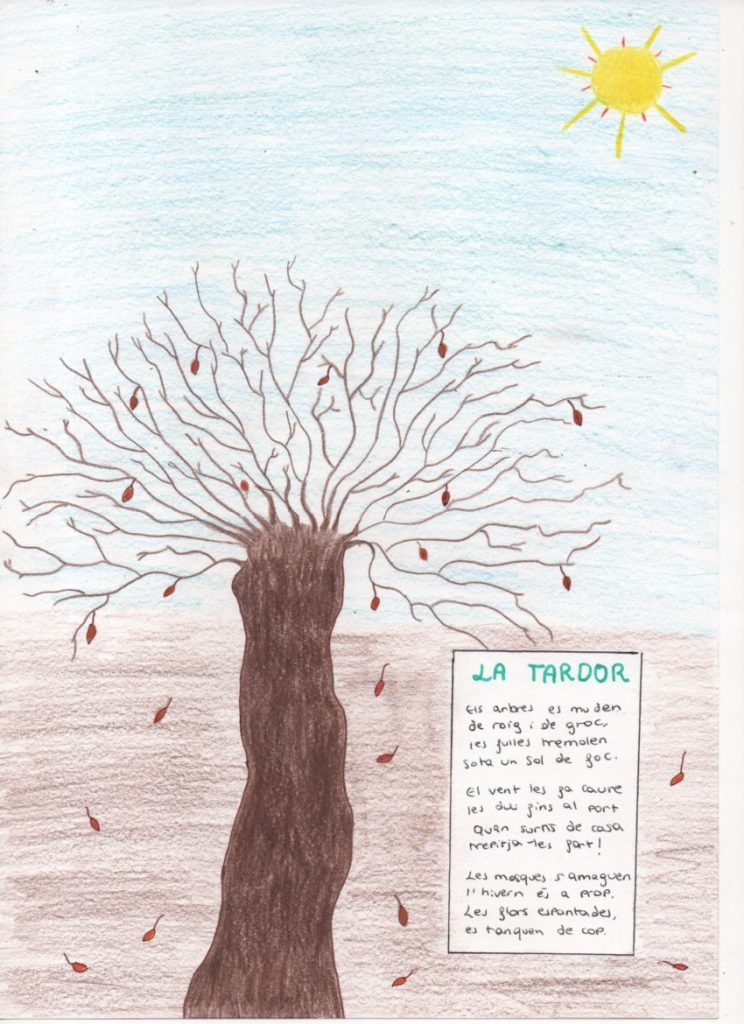 LA TARDOR
Els arbres es muden
de roig i de groc,
les fulles tremolen
sota un sol de foc.
El vent les fa caure
les duu fins al port
quan surtis de casa
trepitja-les fort!
Les mosques s'amaguen
l'hivern és a prop.
Les flors espantades,
es tanquen de cop.